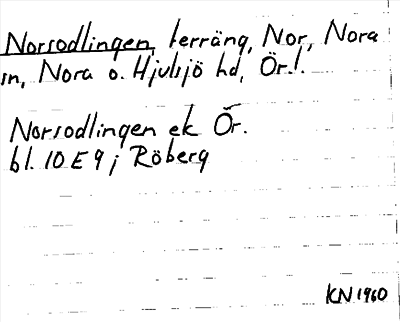 Norsodlingen, terräng, Nor, Nora
sn, Nora o. Hjulsjö hd, Ör.l.
Norsodlingen ek Ör.
bl. 10 E 9 j Röberg
KN 1960